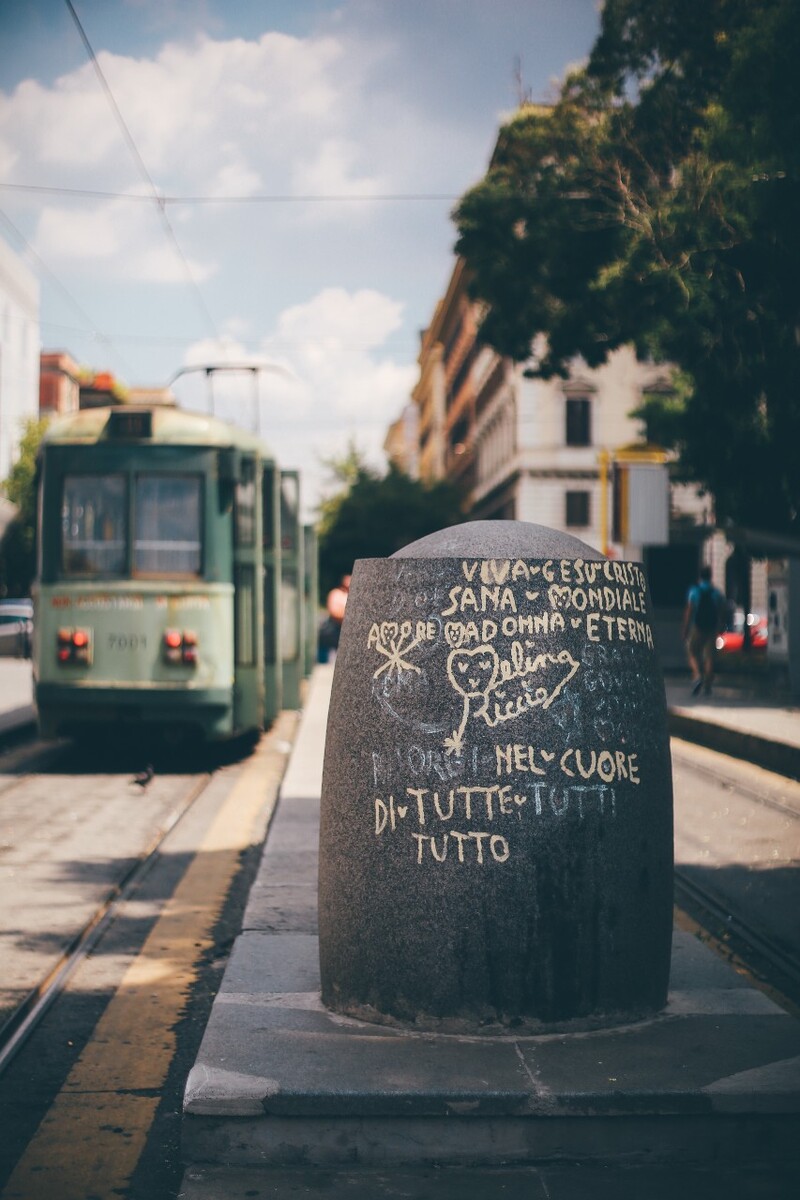 7001
VIVA GESU CRISTO
SANA MONDIALE
AMORE MADONNA ETERNA
Melina
Riccio
NEL CUORE
DI TUTTE TUTTI
TUTTO